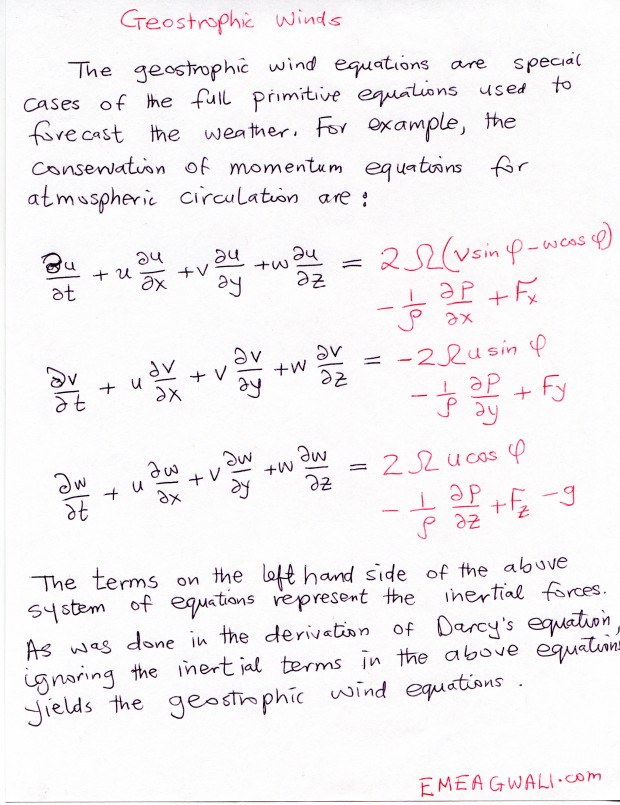 Geostrophic Winds
The geostrophic wind equations are special
cases of the full primitive equations used to
forecast the weather. For example, the
conservation of momentum equations for
atmospheric circulation are :
∂u/∂t + u ∂u/∂x + v ∂u/∂y + w ∂u/∂z = 2Ω(v sin φ - w cos φ)
- 1/ρ ∂P/∂x + Fx
∂v/∂t + u ∂v/∂x + v ∂v/∂y + w ∂v/∂z = -2Ω u sin φ
- 1/ρ ∂P/∂y + Fy
∂w/∂t + u ∂w/∂x + v ∂w/∂y + w ∂w/∂z = 2Ω u cos φ
- 1/ρ ∂P/∂z + Fz - g
The terms on the left hand side of the above
system of equations represent the inertial forces.
As was done in the derivation of Darcy's equation,
ignoring the inertial terms in the above equations
yields the geostrophic wind equations .
EMEAGWALI.com